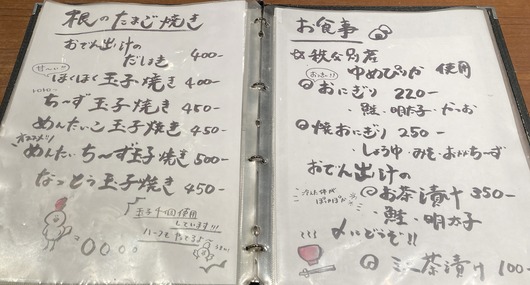 根のたまご焼き
おでん出汁の
だしまき 400-
ほくほく玉子焼き 400-
ちーず玉子焼き 450-
めんたいこ玉子焼き 450-
オススメ!!
めんたいちーず玉子焼き 500-
なっとう玉子焼き 450-
玉子4個使用
しています!!!
お食事
ゆめぴりか 使用
おにぎり 220-
・鮭・明太子・かつお
焼おにぎり 250-
・しょうゆ・みそ・おかかちーず
おでん出汁の
お茶漬け 350-
・鮭・明太子
〆にどうぞ!!
ミニ茶漬け 100-